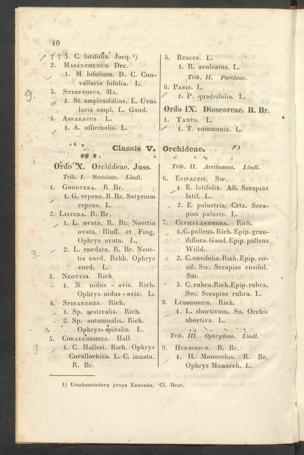 10
† † 5. C. latifolia. Jacq. ¹)
2. Maianthemum. Dec.
1. M bifolium. D. C. Con-
vallaria bifolia. L.
3. Streptopus. Mx.
1. St. amplexifolius. L. Uvu-
laria ampl. L. Gaud.
4. Asparagus L.
1. A. officinalis. L.
5. Ruscus. L.
1. R. aculeatus. L.
Trib. II. Parideae.
6. Paris. L.
1. P. quadrifolia. L.
Ordo IX. Dioscoreae. R. Br.
1. Tamus. L.
1. T. communis. L.
Classis V. Orchideae.
Ordo X. Orchideae. Juss.
Trib. I. Neottieae. Lindl.
1. Goodyera. R. Br.
1. G. repens. R. Br. Satyrium
repens. L.
2. Listera. R. Br.
1. L. ovata. R. Br. Neottia
ovata. Bluff. et. Fing.
Ophrys ovata. L.
2. L. cordata. R. Br. Neot-
tia cord. Rchb. Ophrys
cord. L.
3. Neottia. Rich.
1. N. nidus - avis. Rich.
Ophrys nidus - avis. L.
4. Spiranthes. Rich.
1. Sp. aestivalis. Rich.
2. Sp. autumnalis. Rich.
Ophrys spiralis. L.
5. Corallorhiza. Hall
1. C. Halleri. Rich. Ophrys
Corallorhiza. L. C. innata.
R. Br.
Trib. II. Arethuseae. Lindl.
6. Epipactis. Sw.
1. E. latifolia. All. Serapias
latif. L.
2. E. palustris. Crtz. Sera-
pias palustr. L.
7. Cephalanthera. Rich.
1. C. pallens. Rich. Epip. gran-
diflora. Gaud. Epip. pallens
Willd.
2. C. ensifolia. Rich. Epip. en-
sif. Sw. Serapias ensifol.
Sm.
3. C. rubra. Rich. Epip. rubra.
Sw. Serapias rubra. L.
8. Limodorum. Rich.
1. L. abortivum. Sw. Orchis
abortiva. L.
Trib. III. Ophrydeae. Lindl.
9. Herminium. R. Br.
1. H. Monorchis. R. Br.
Ophrys Monorch. L.